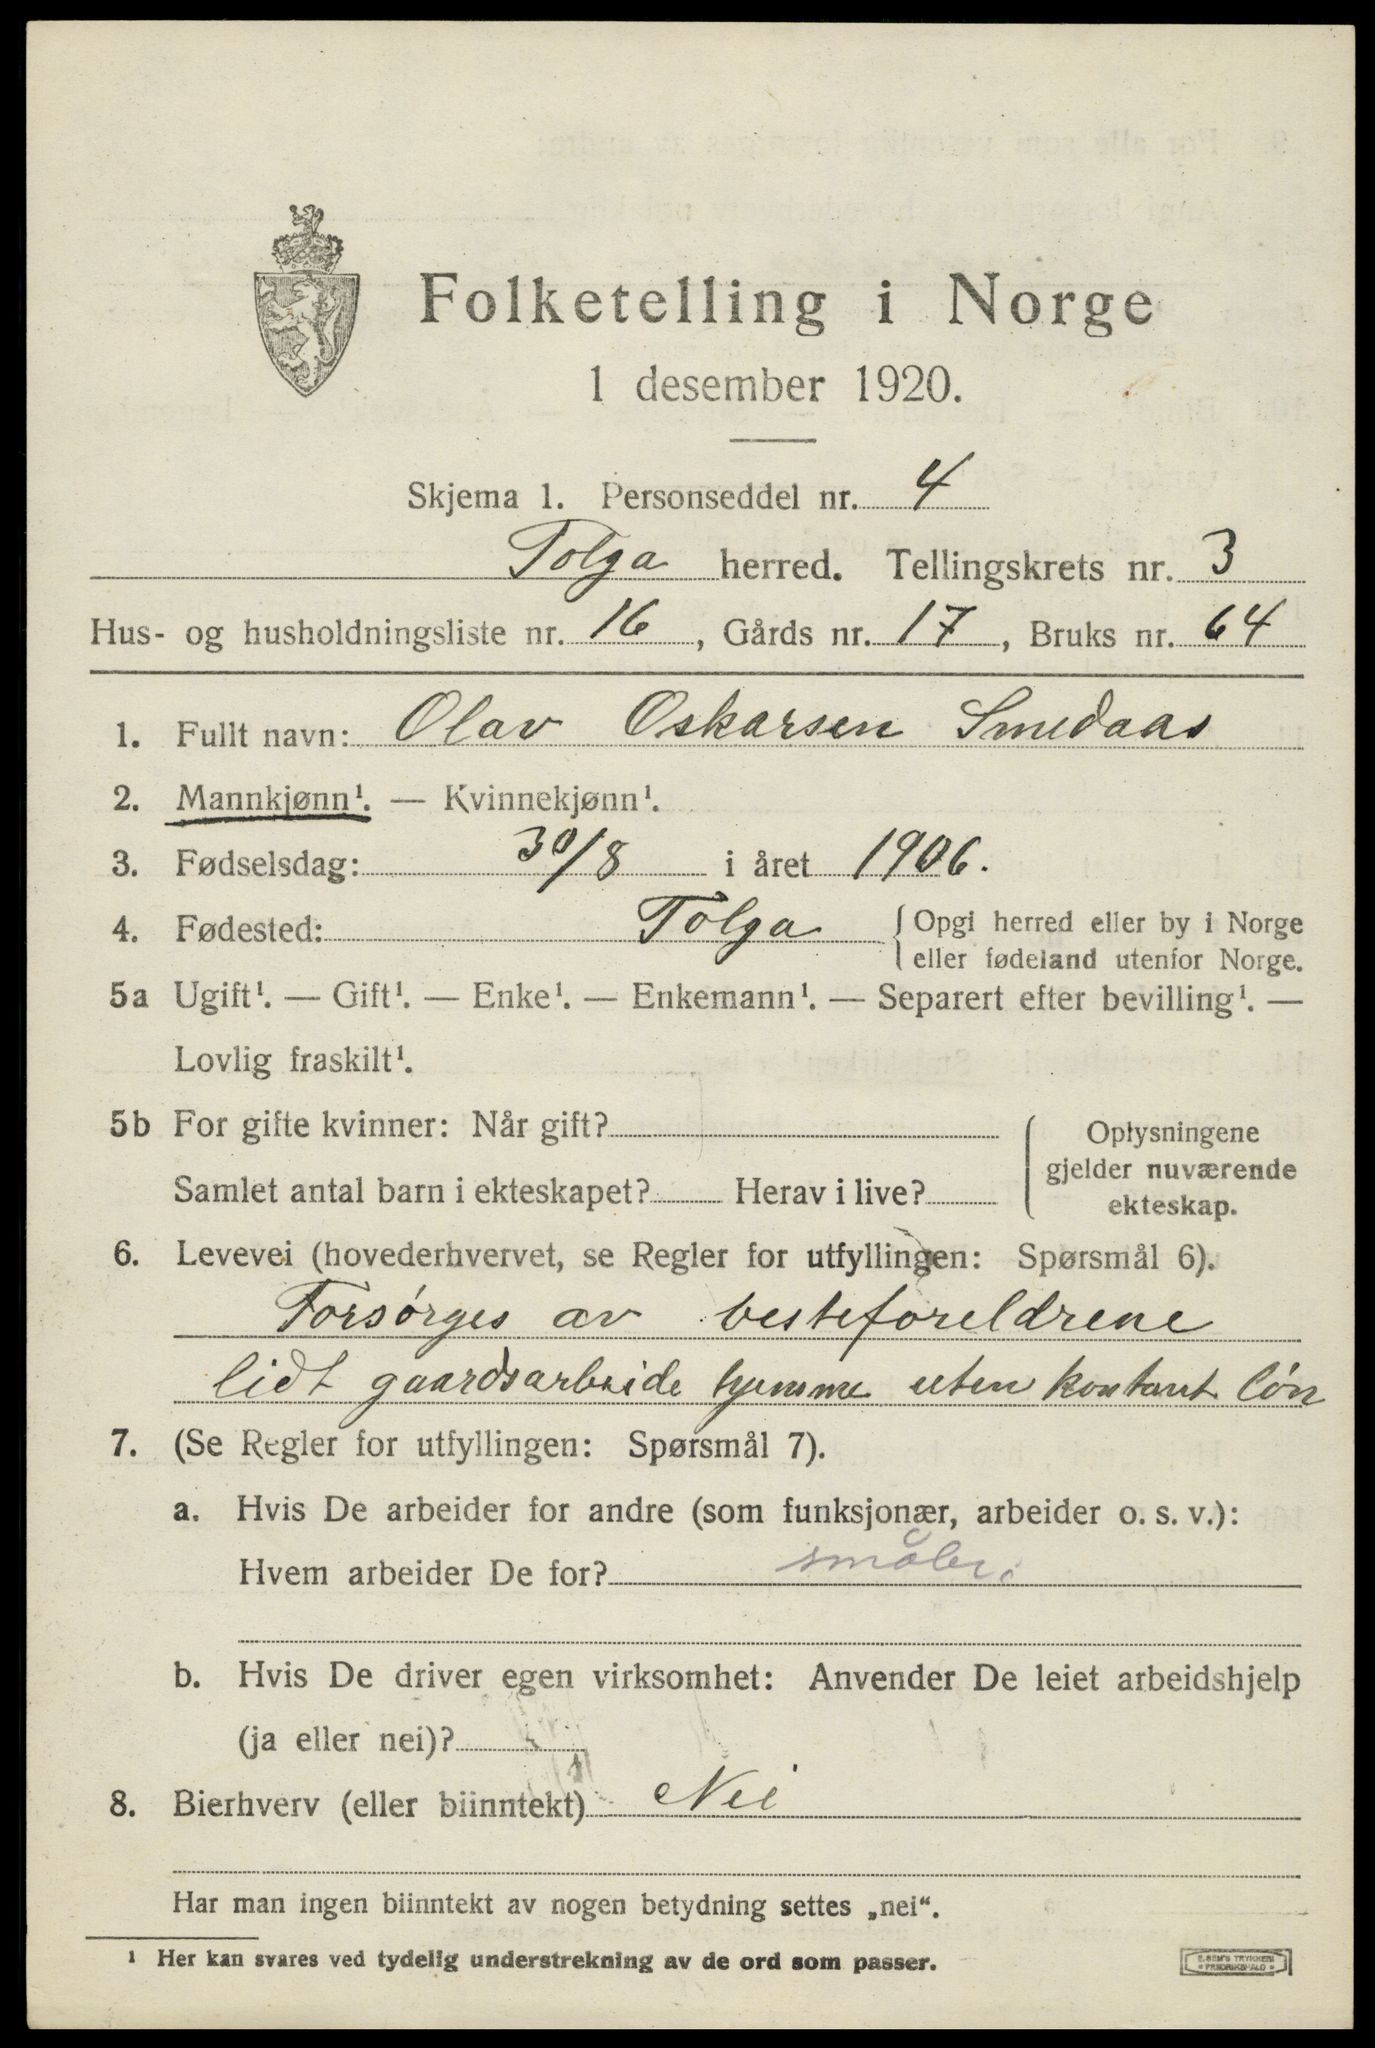 Folketelling i Norge
1 desember 1920.
Skjema 1. Personseddel nr. 4
Tolga herred. Tellingskrets nr. 3
Hus- og husholdningsliste nr. 16, Gårds nr. 17, Bruks nr. 64
1. Fullt navn: Olav Oskarsen Smedaas
2. Mannkjønn¹. — Kvinnekjønn¹.
3. Fødselsdag: 30/8 i året 1906.
4. Fødested: Tolga { Opgi herred eller by i Norge
eller fødeland utenfor Norge.
5a Ugift¹. — Gift¹. — Enke¹. — Enkemann¹. — Separert efter bevilling¹. —
Lovlig fraskilt¹.
5b For gifte kvinner: Når gift?
Samlet antal barn i ekteskapet? Herav i live?
Oplysningene
gjelder nuværende
ekteskap.
6. Levevei (hovederhvervet, se Regler for utfyllingen: Spørsmål 6).
Forsørges av besteforeldrene
lidt gaardsarbeide hjemme uten kontant løn
7. (Se Regler for utfyllingen: Spørsmål 7).
a. Hvis De arbeider for andre (som funksjonær, arbeider o. s. v.):
Hvem arbeider De for?
b. Hvis De driver egen virksomhet: Anvender De leiet arbeidshjelp
(ja eller nei)?
8. Bierhverv (eller biinntekt) Nei
Har man ingen biinntekt av nogen betydning settes „nei“.
¹ Her kan svares ved tydelig understrekning av de ord som passer.